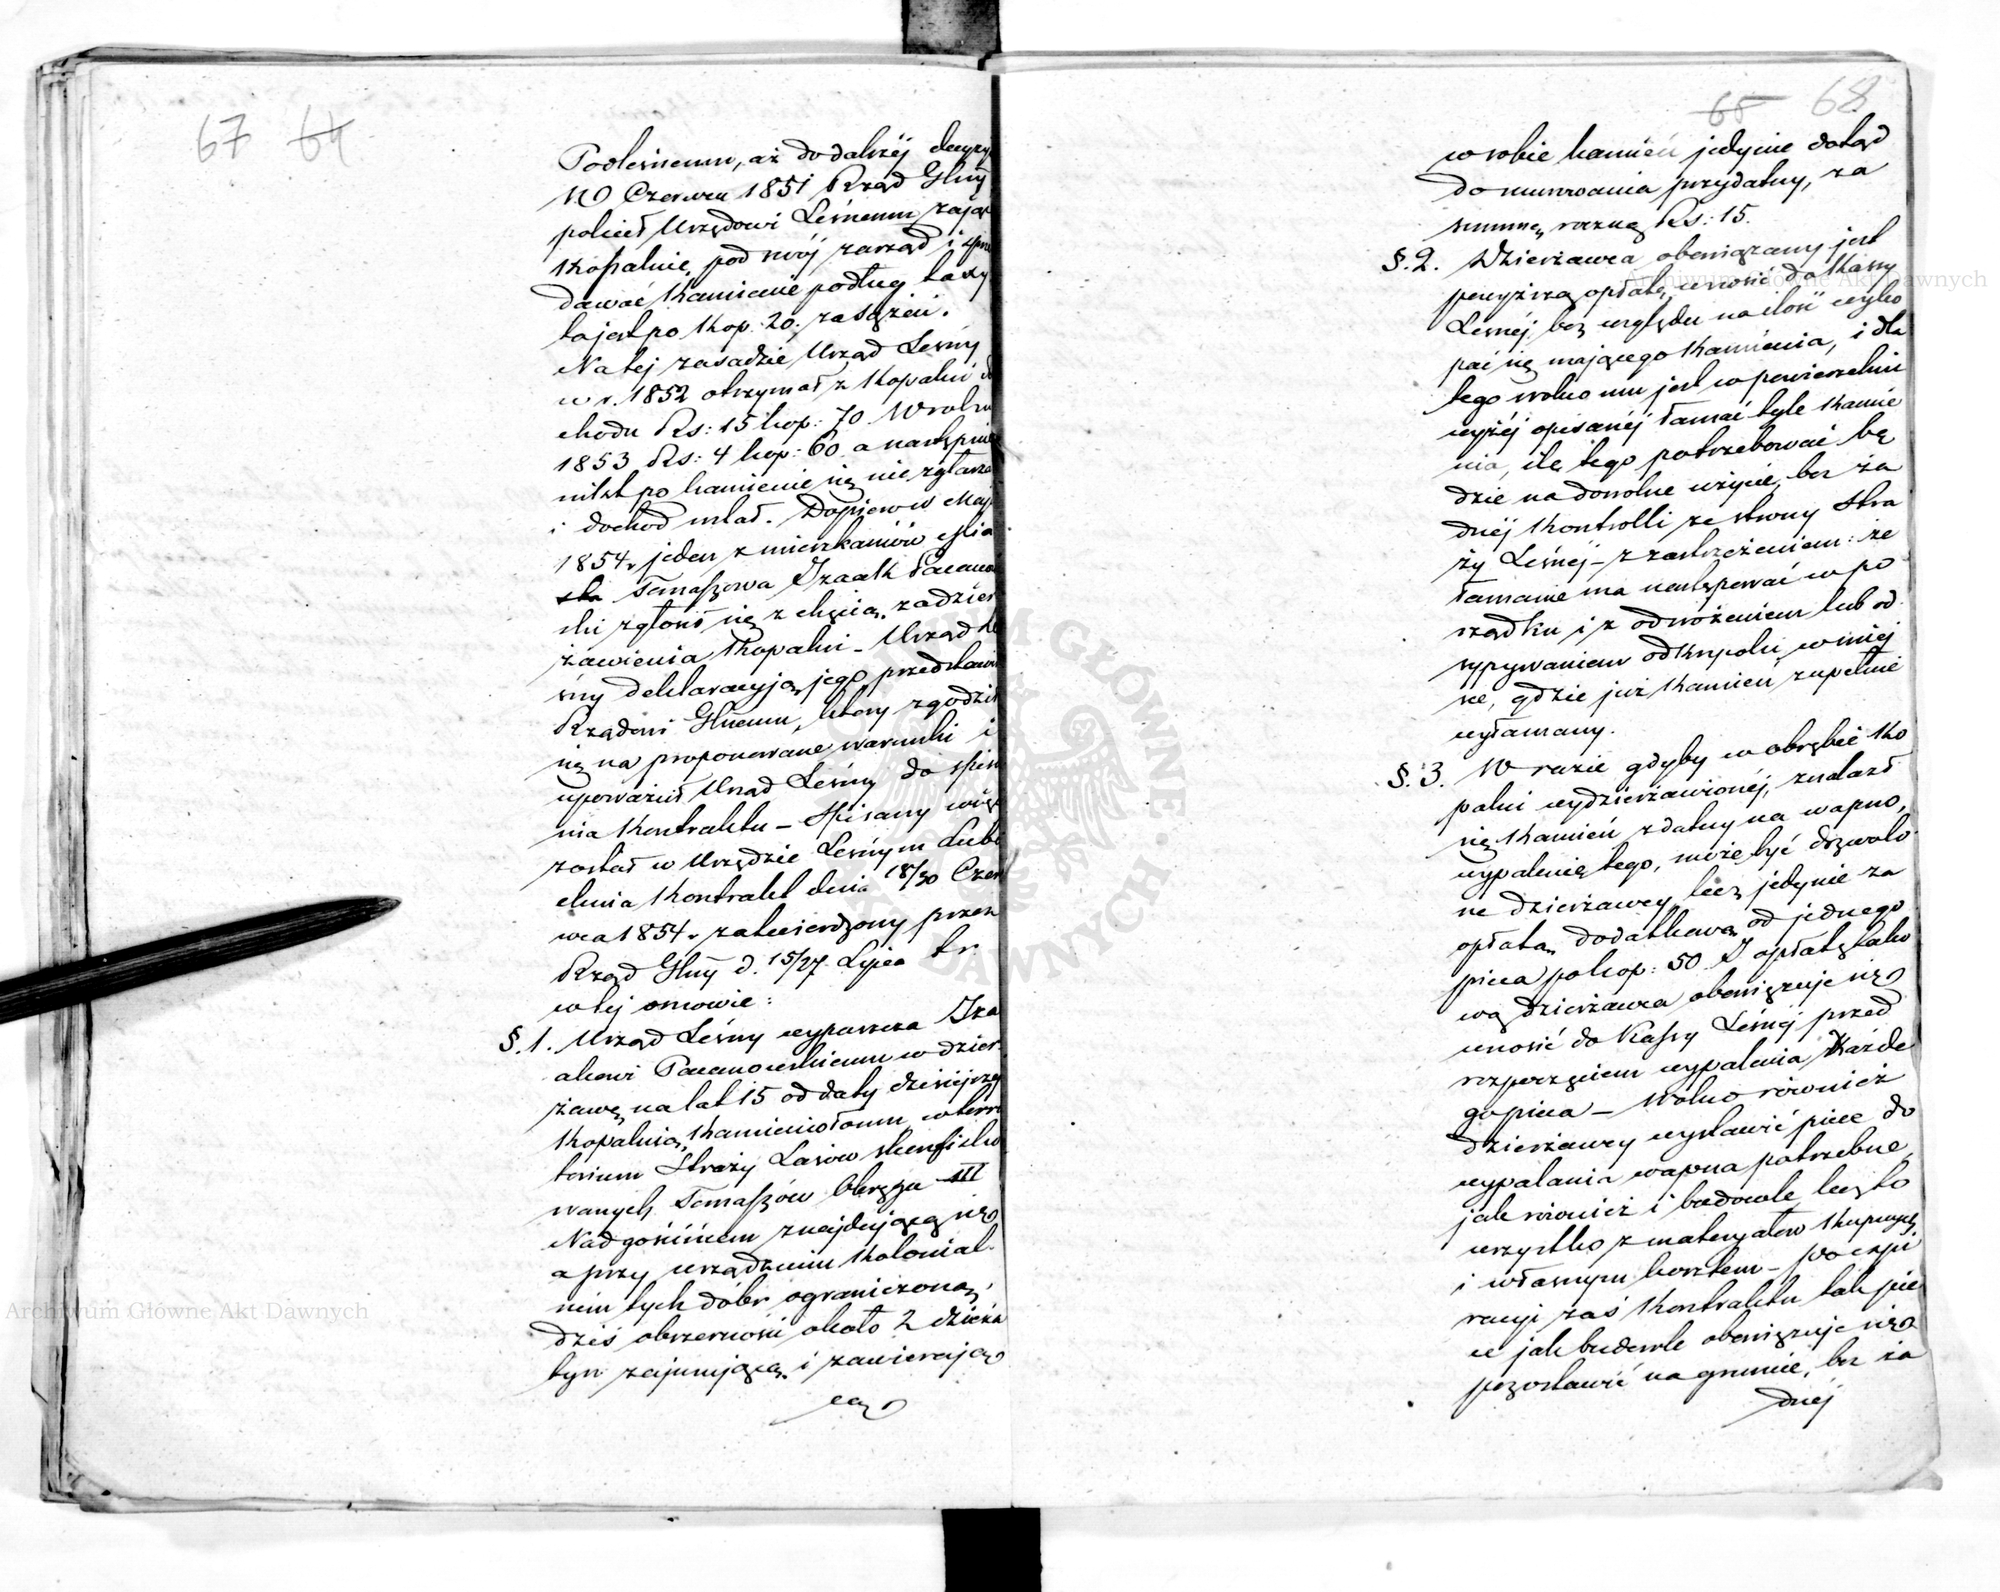 67 64
Podleśnemu, aż do dalszéj decyzyi
W Czerwcu 1851 Rząd Głny
polecił Urzędowi Leśnemu zająć
Kopalnię pod swój zarząd i sprze
dawać Kamienie podług taxy
to jest po Kop. 20. za sążeń.
Na tej zasadzie Urząd Leśny
w r. 1852 otrzymał z Kopalni do
chodu Rs: 15 kop: 70. W roku
1853 Rs: 4 kop: 60. a następnie
nikt po kamienie się nie zgłasza
i dochod ustał. Dopiero w Maju
1854 r. jeden z mieszkańców Mia
sta Tomaszowa Izaak Pacanow
ski zgłosił się z chęcią zadzier
żawienia Kopalni - Urząd Le
śny deklaracyją jego przedstawił
Rządowi Głnemu, który zgodził
się na proponowane warunki i
upoważnił Urząd Leśny do spisa
nia Kontraktu - Spisany więc
został w Urzędzie Leśnym Lubo
chnia Kontrakt dnia 18/30 Czer
wca 1854 r. zatwierdzony przez
Rząd Głny d. 15/27 Lipca t.r.
w tej osnowie:
§. 1. Urząd Leśny wypuszcza Iza
akowi Pacanowskiemu w dzier
żawę na lat 15 od daty dzisiejszej
Kopalnią Kamieniołomu w terri
torium Straży Lasów skonfisko
wanych Tomaszów Obrębu III
Nadgóśćicem znajdującą się
a przy urządzeniu Kolonial
nem tych dóbr ograniczoną,
dziś obszerności około 2 dziesia
tyn zajmującą i zawierają
cą
65 68
w sobie kamień jedynie dotąd
do murowania przydatny, za
summę roczną Rs: 15.
§. 2. Dzierżawca obowiązany jest
powyższą opłatę wnosić do Kassy
Leśnéj bez względu na ilość wyko
pać się mającego Kamienia, i dla
tego wolno mu jest w powierzchni
wyżéj opisanéj łamać tyle Kamie
nia, ile tego potrzebować bę
dzie na dowolne użycie, bez ża
dnéj Kontrolli ze strony Stra
ży Leśnéj - z zastrzeżeniem: że
łamanie ma następować w po
rządku i z odwożeniem lub od
sypywaniem odkrypolu w miej
sce, gdzie już Kamień zupełnie
wyłamany.
§. 3. W razie gdyby w obrębie Ko
palni wydzierżawionéj, znalazł
się Kamień zdatny na wapno,
wypalenie tego, może być dozwolo
ne dzierżawcy, lecz jedynie za
opłatą dodatkową od jednego
pieca po kop: 50. I opłatę tako
wą dzierżawca obowiązuje się
wnosić do Kassy Leśnéj przed
rozpoczęciem wypalenia Każde
go pieca - Wolno również
dzierżawcy wystawić piece do
wypalania wapna potrzebne,
jak również i budowle, lecz to
wszystko z materyałów Kupnych
i własnym kosztem - po expi
racyi zaś Kontraktu tak pie
ce jak budowle obowiązuje się
pozostawić na gruncie, bez ża
dnéj
Archiwum Główne Akt Dawnych
Archiwum Główne Akt Dawnych
ARCHIWUM GŁÓWNE AKT DAWNYCH